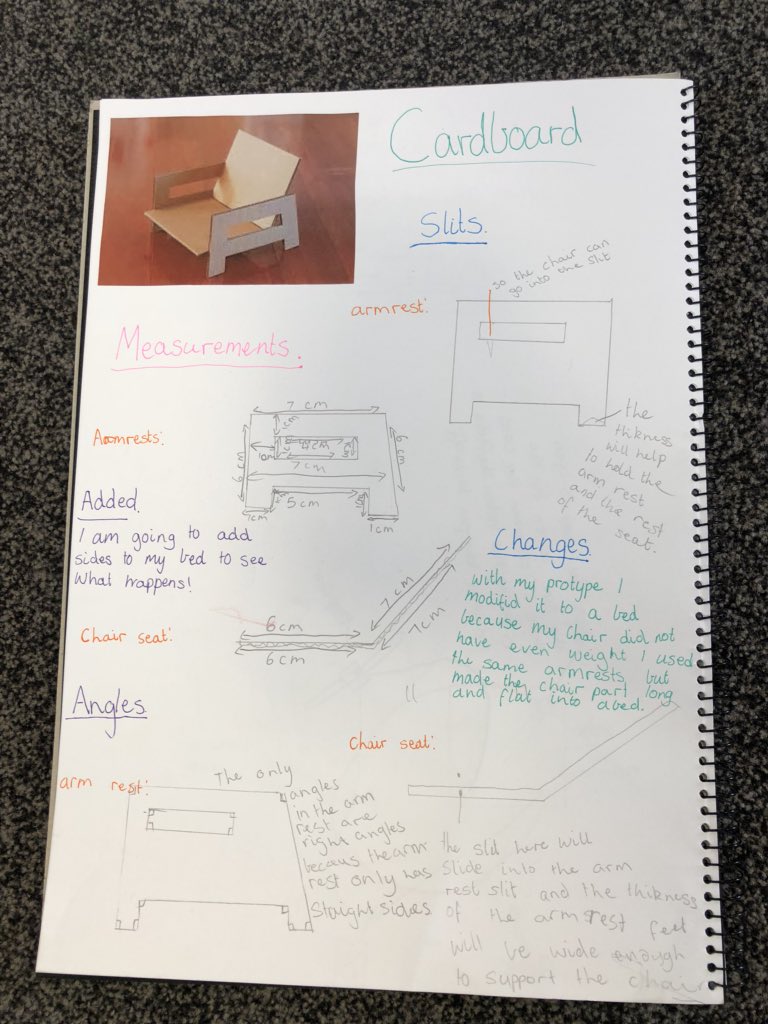 Cardboard
Slits.
so the chair can
go into the slit
armrest:
the
thikness
will help
to hold the
arm rest
and the rest
of the seat.
Measurements.
Armrests:
7 cm
1cm
6 cm
1cm
4cm
1cm
7 cm
6 cm
5 cm
1cm
1cm
Added.
I am going to add
sides to my bed to see
What happens!
Changes
with my protype I
modifid it to a bed
because my chair did not
have even weight I used
the same armrests but
made the chair part long
and flat into a bed.
Chair seat:
6 cm
6 cm
7 cm
7cm
Angles
arm rest:
The only
angles
in the arm
rest are
right angles
becaus the arm
rest only has
Staight sides
Chair seat:
the slit here will
Slide into the arm
rest slit and the thikness
of the armrest feet
will be wide enough
to support the chair